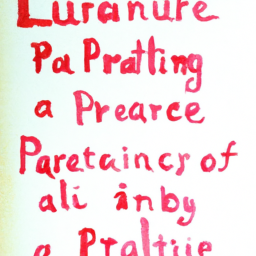 Luranure
Pa Pratting
a Prearce
Paretaincy of
ali inby
a Praltiie